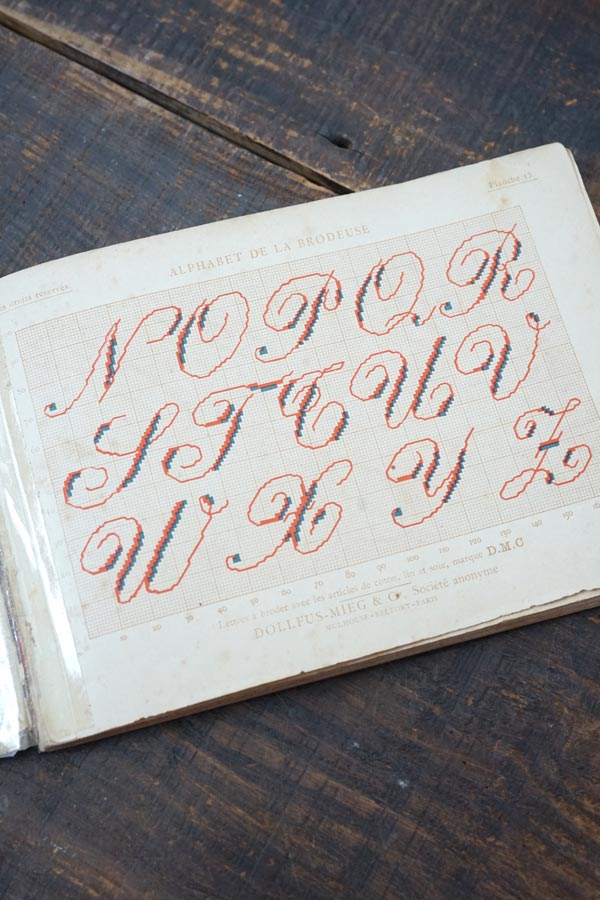 Planche 13
ALPHABET DE LA BRODEUSE
droits réservés
N O P Q R
S T T U V
W X Y Z
10 20 30 40 50 60 70 80 90 100 110 120 130 140 150
Lettres à broder avec les articles de coton, lin et soie, marque D.M.C
DOLLFUS-MIEG & Cie, Société anonyme
MULHOUSE-BELFORT-PARIS